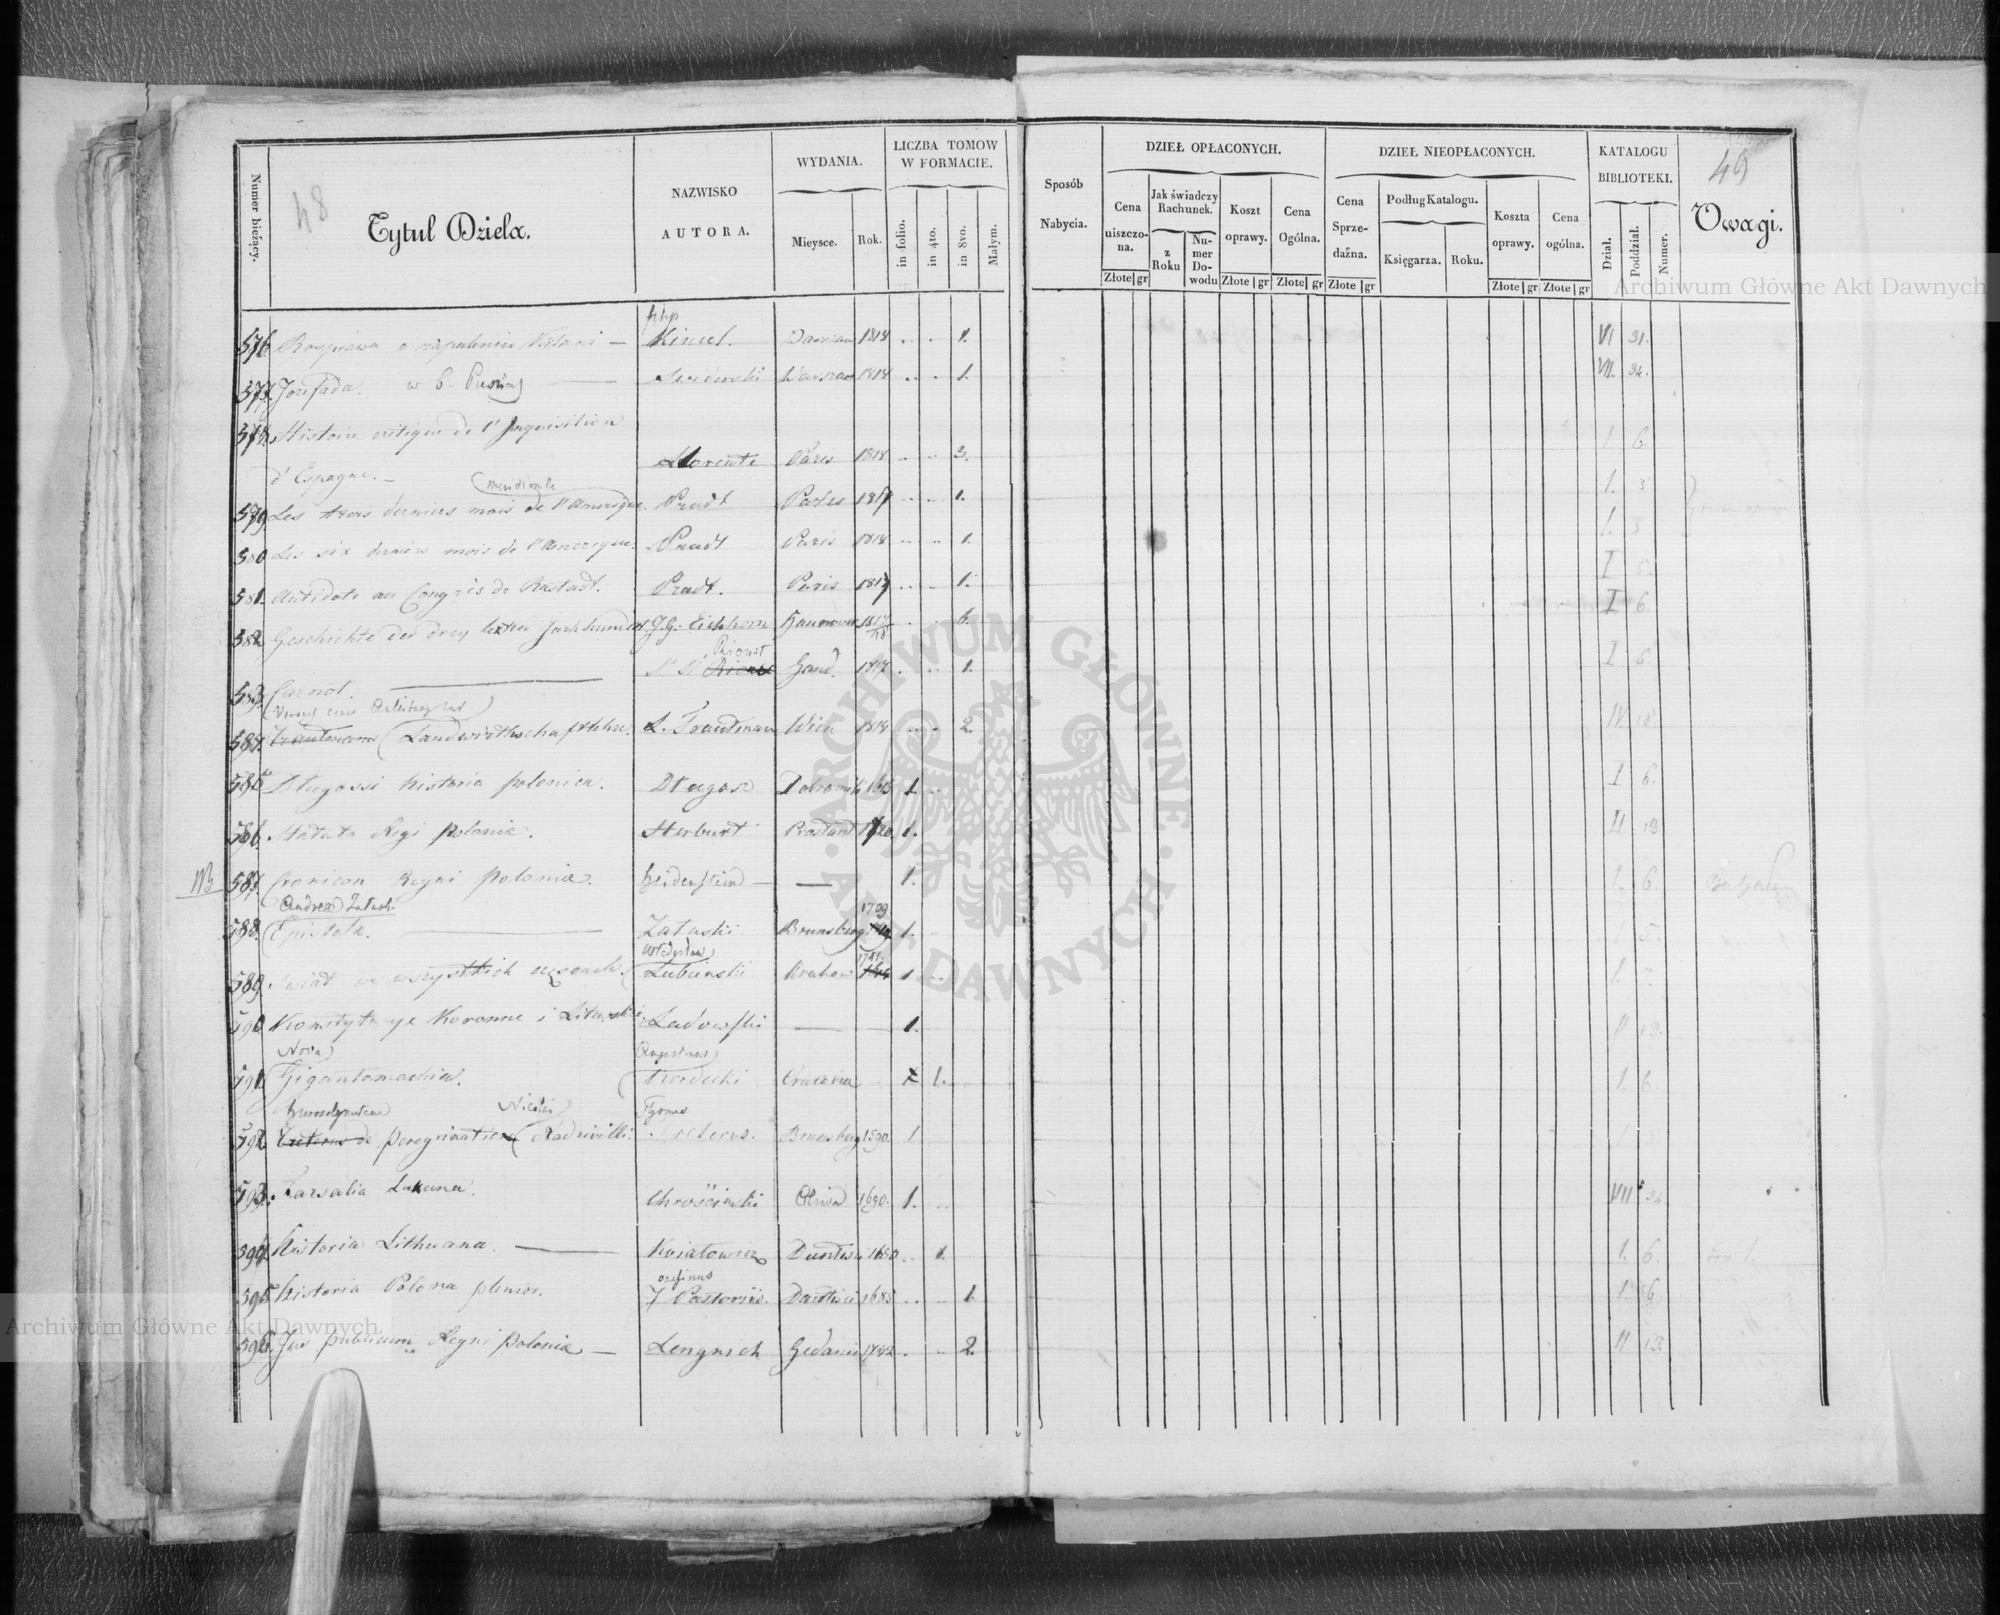 48
49
Numer bieżący.
Tytuł Dzieła.
NAZWISKO AUTORA.
WYDANIA.
Mieysce.
Rok.
LICZBA TOMOW W FORMACIE.
in folio.
in 4to.
in 8vo.
Małym.
Sposób Nabycia.
DZIEŁ OPŁACONYCH.
Cena uiszczona.
Jak świadczy Rachunek.
z Roku
Numer Dowodu
Koszt oprawy.
Cena Ogólna.
DZIEŁ NIEOPŁACONYCH.
Cena Sprzedaźna.
Podług Katalogu.
Księgarza.
Roku.
Koszta oprawy.
Cena ogólna.
KATALOGU BIBLIOTEKI.
Dział.
Poddział.
Numer.
Uwagi.
Złote gr Złote gr Złote gr Złote gr Złote gr Złote gr
576 Rozprawa o zapaleniu Krtani — Kincel. 1818 1. VI 31.
577. Jozefada. w 6. — Warszaw 1818 1. VII. 34.
578. Histoire critique de l'Inquisition
d'Espagne. — Llorente Paris 1818 3. I. 6.
meridionale
579. Les trois derniers mois de l'Amerique. Pradt Paris 1817 1. I. 3
580 Les six derniers mois de l'Amerique. Pradt Paris 1818 1. I. 3
581. Antidote au Congrés de Rastadt. Pradt. Paris 1817 1. I
582 Geschichte der drey letzten Jarhundert. J.G. Eichhorn Hannover 1817/18 6. I 6.
Rioust
583. Carnot. — Gand. 1817 1. I 6
584. Landwirthschaftlehre. L. Trautmann Wien 2. IV. 18
585 Długossi historia polonica. Długosz Dobromil 1615 1. I 6.
586 Statuta Regi Poloniæ. Herburt 1. II 13
NB 587. Cronicon Regni Poloniæ. Heidenstein — — 1. I. 6.
Andreæ Załuski
1709
588. Epistolæ. — Załuski Brunsberg 1. 5.
Władysław
589. Swiat we wszystkich częsciach. Łubienski Krakow 1. I. 7.
590 Konstytucye Koronne i Litewskie Ładowski — — 1. II 13.
Nova
Augustinus
591. Gigantomachia. Cracovia 1. I. 6.
Hierosolymitana
592. de peregrinatione Radzivilli. Treterus. Brunsberg 1590. 1
593. Farsalia Lukana. Chrościnski Oliva 1690. 1. VII 34
594. Historia Lithuana. — Koiałowicz Dantisci 1650 1. I. 6.
595 Historia Polona plenior. J Pastorius. Dantisci 1685 1. I. 6
596. Jus publicum Regni Poloniæ — Lengnich Gedani 1742 2. II 13
Archiwum Główne Akt Dawnych
Archiwum Główne Akt Dawnych
ARCHIWUM GŁÓWNE AKT DAWNYCH